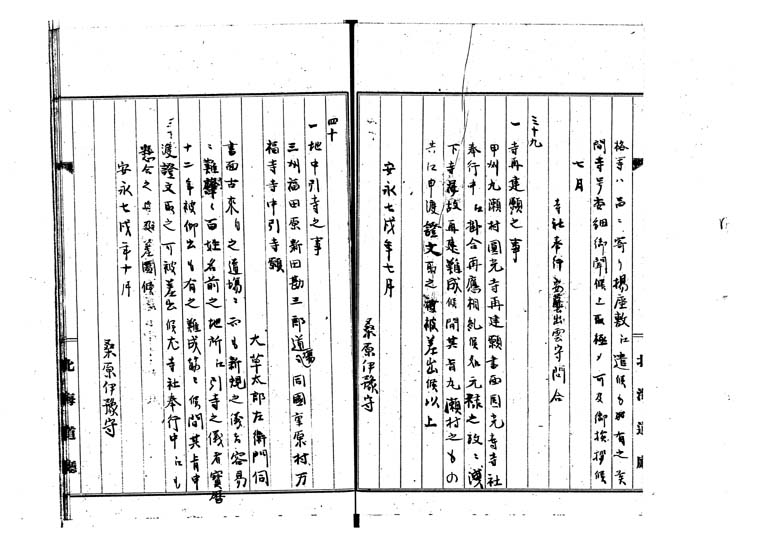 格等ハ品ニ寄り揚座敷江遣候も有之候
間寺号委細御聞候上取極メ可及御挨拶候
七月
寺社奉行安藝出雲守問合
三十九
一寺再建願之事
甲州九瀬村圓光寺再建願書面圓光寺寺社
奉行中江掛合再應相糺候処元禄之頃
下寺 故再建難成候間其旨九瀬村之もの
共江申渡證文取之 被差出候以上
安永七戌年七月
桑原伊豫守
四十
一地中引寺之事
三州福田原新田勘三郎道場 同國 原村万
福寺寺中引寺願
大草太郎左衛門伺
書面古来 之道場ニ而も新規之儀 容易
ニ難 百姓名前之地所江引寺之儀者寳暦
十二年被仰出も有之難成筋ニ候間其旨申
渡證文取之可被差出候尤寺社奉行中江も
懸合之 差圖候
安永七戌年十月
桑原伊豫守
北海道廳
北海道廳